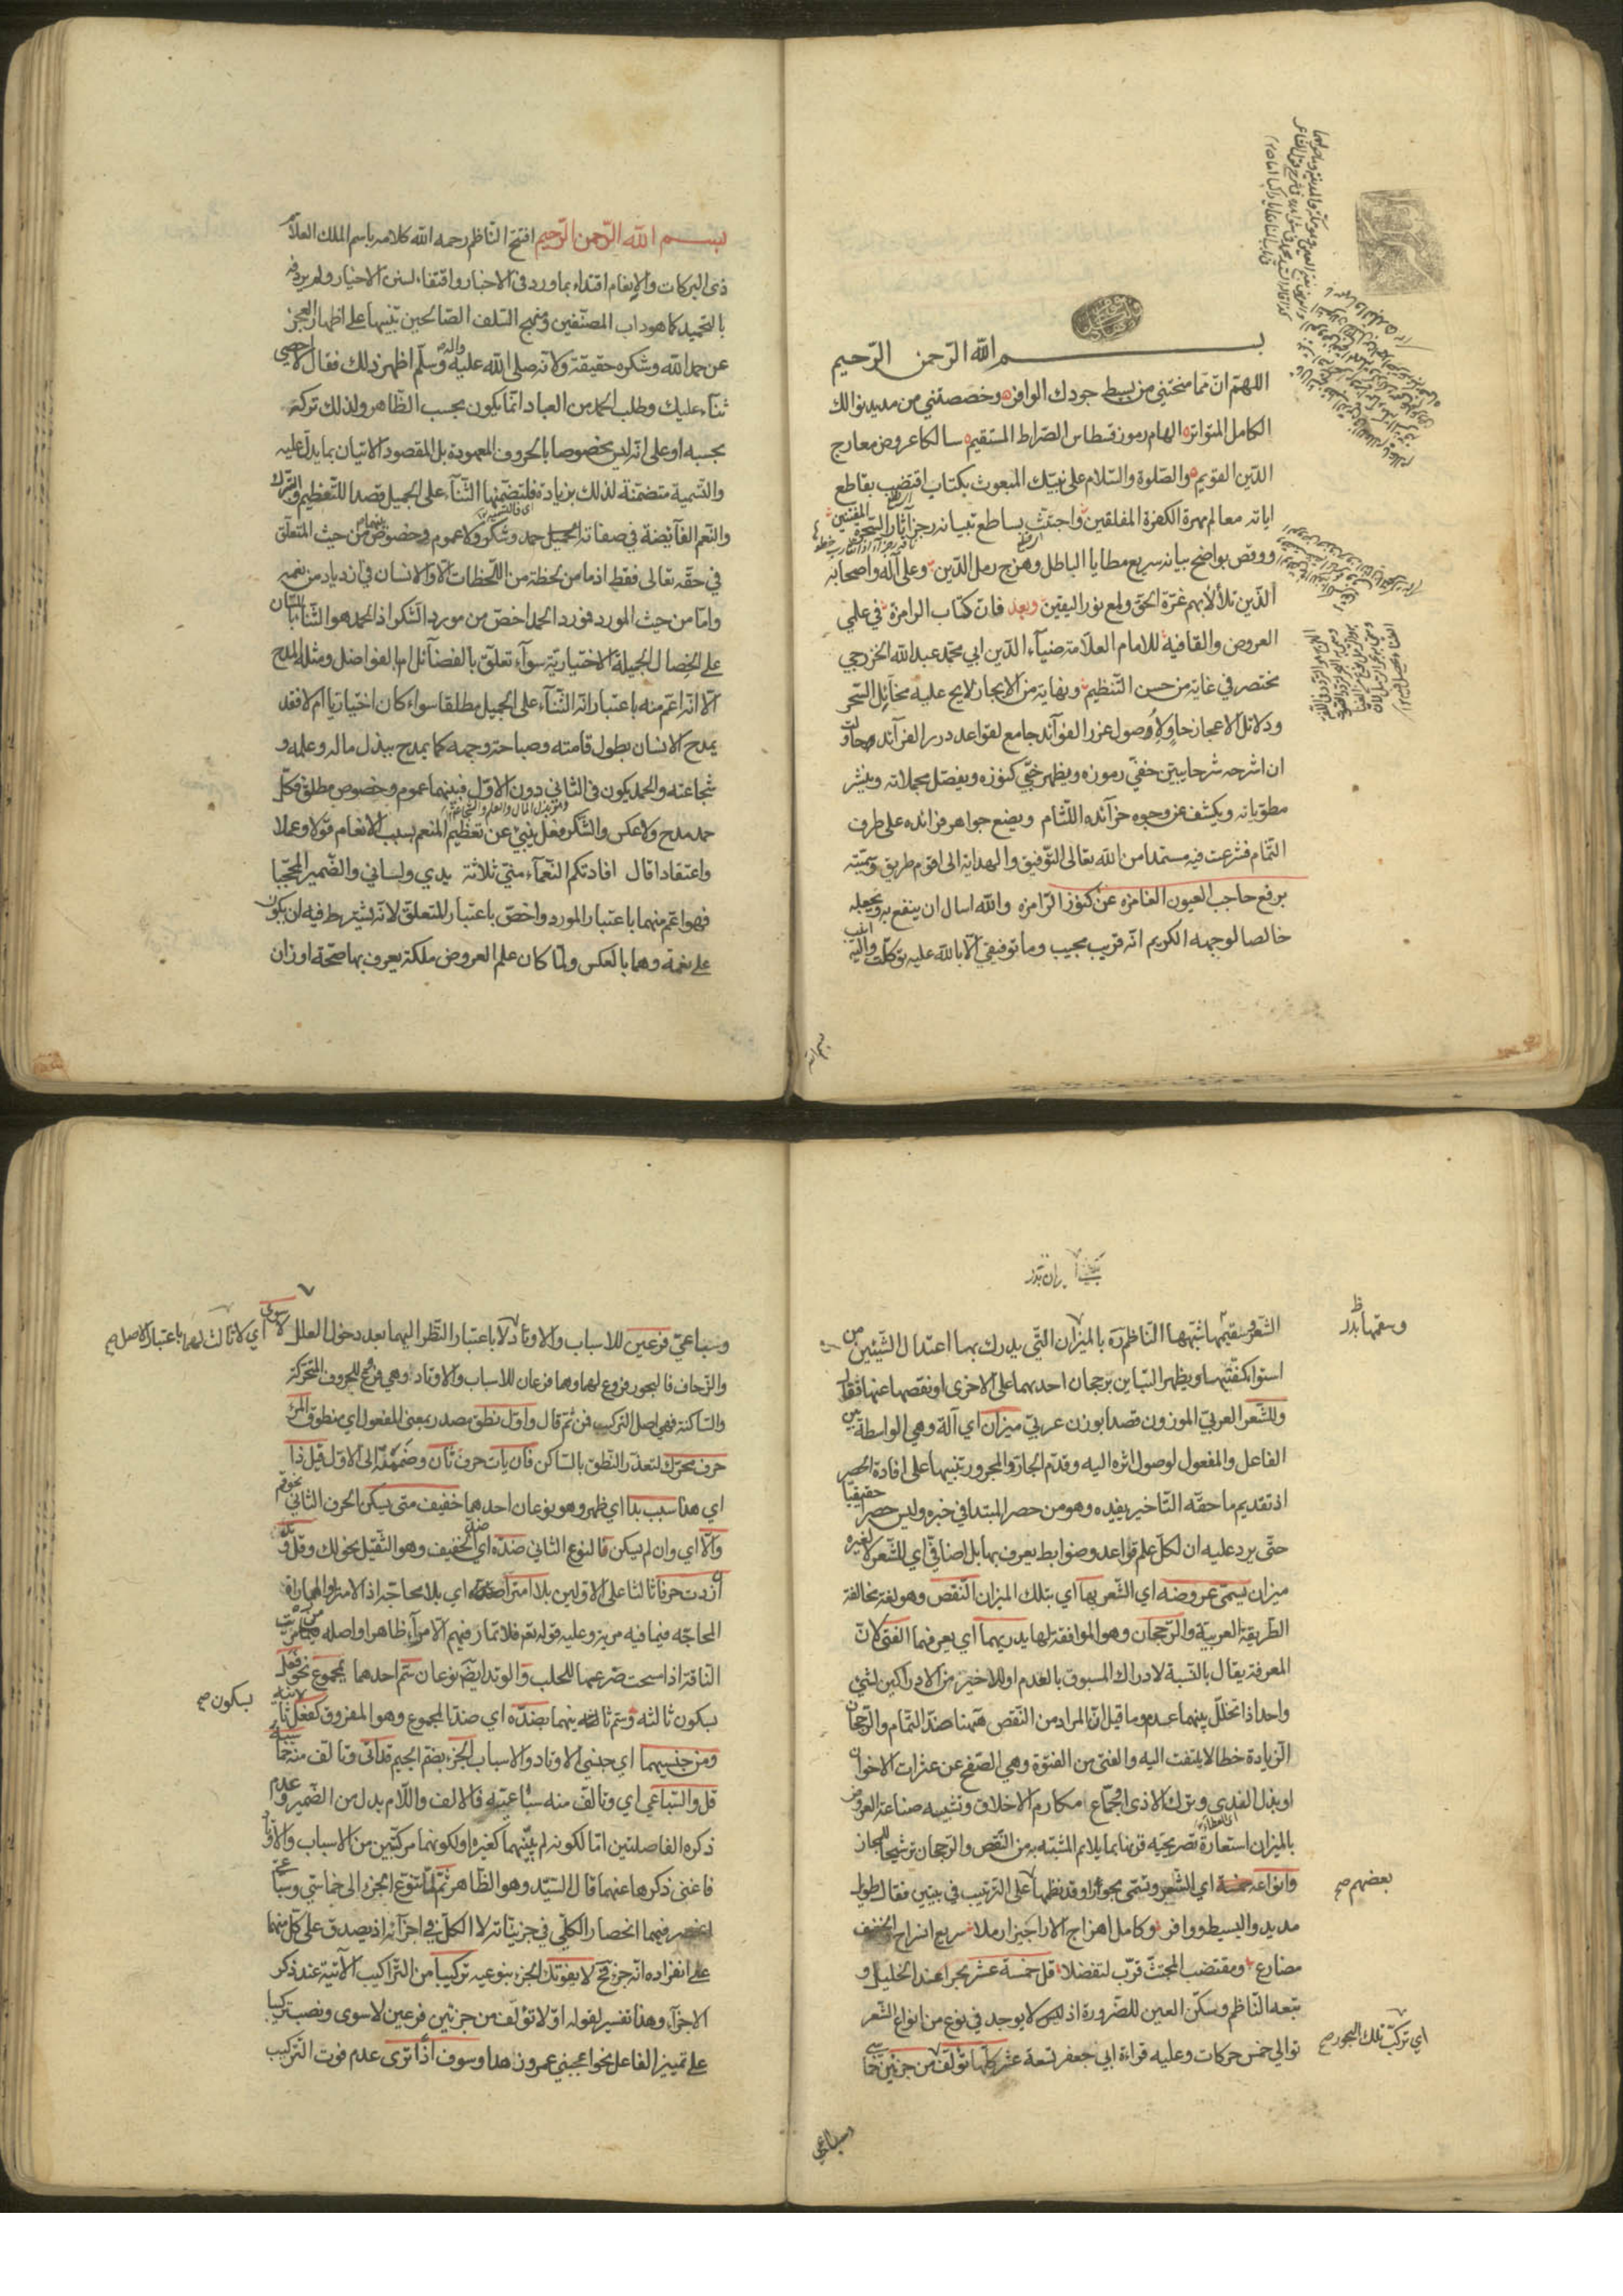 بسم الله الرّحمن الرّحيم
اللهمّ انّ ممّا منحتني من بسيط جودك الوافر وخصصتني من مديد نوالك
الكامل المتواتر الهام رموز قسطاس الصّراط المستقيم سالكا عروض معارج
الدّين القويم والصّلوة والسّلام على نبيّك المبعوث بكتاب اقتضب بقاطع
اياته معالم مهرة الكفرة المفلقين واجتثّ بساطع تبيانه رجز آثار السّحرة المفتنين
ووقص بواضح بيانه سريع مطايا الباطل وهزج رمل الدّين وعلى آله واصحابه
الّذين تلألأ بهم غرّة الحقّ ولمع نور اليقين وبعد فانّ كتاب الرامزة في علمي
العروض والقافية للامام العلاّمة ضيآء الدّين ابي محمّد عبد الله الخزرجي
مختصر في غاية من حسن التّنظيم ونهاية من الايجاز لايح عليه مخآئل السّحر
ودلائل الاعجاز حاوٍ لاُصول غرر الفوآئد جامع لقواعد درر الفرآئد حاولت
ان اشرحه شرحا يبيّن خفيّ رموزه ويظهر خبيّ كنوزه ويفصّل مجملاته وينشر
مطوياته ويكشف عن وجوه خرآئده اللّثام ويضع جواهر فرائده على طرف
الثمام فشرعت فيه مستمدا من الله تعالى التّوفيق والهداية الى اقوم طريق وسمّيته
برفع حاجب العيون الغامزه عن كنوز الرّامزه والله اسال ان ينفع به ويجعله
خالصا لوجهه الكريم انّه قريب مجيب وما توفيقي الّا بالله عليه توكّلت واليه انيب
بسم الله
بسم الله الرّحمن الرّحيم افتتح النّاظم رحمه الله كلامه باسم الملك العلاّم
ذى البركات والانعام اقتداء بما ورد فى الاخبار واقتفاء لسنن الاخيار ولم يردفه
بالتحميد كما هو داب المصنّفين ومنهج السّلف الصّالحين تنبيها على اظهار العجز
عن حمد الله وشكره حقيقة ولانّه صلى الله عليه واله وسلّم اظهر ذلك فقال لا احصى
ثناء عليك وطلب الحمد من العباد انّما يكون بحسب الظّاهر ولذلك تركه
بحسبه او على انّه ليس مخصوصا بالحروف المعهودة بل المقصود الاتيان بما يدلّ عليه
والتّسمية متضمّنة لذلك بزيادة فلتضمّنها الثّنآء على الجميل قصدا للتّعظيم والتبرك
والنّعم الفآئضة في صفاته الجميل حمد وشكر ولا عموم وخصوص بينهما من حيث المتعلّق
في حقّه تعالى فقط اذ ما من لحظة من اللّحظات الّا والانسان في ازدياد من نعمه
وامّا من حيث المورد فمورد الحمد اخصّ من مورد الشّكر اذ الحمد هو الثّنآء باللّسان
على الخصال الجميلة الاختياريّة سوآء تعلّق بالفضآئل ام بالفواضل ومثله المدح
الّا انّه اعمّ منه باعتبار انّه الثّنآء على الجميل مطلقا سواء كان اختياريا ام لا فقد
يمدح الانسان بطول قامته وصباحة وجهه كما يمدح ببذل ماله وعلمه و
شجاعته والحمد يكون فى الثاني دون الاوّل فبينهما عموم وخصوص مطلق فكلّ
حمد مدح ولا عكس والشّكر فعل ينبئ عن تعظيم المنعم بسبب الانعام قولا وعملا
واعتقادا قال افادتكم النّعمآء منّي ثلاثة يدي ولساني والضّمير المحجّبا
فهو اعمّ منهما باعتبار المورد واخصّ باعتبار المتعلّق لانّه يشترط فيه ان يكون
على نعمة وهما بالعكس ولمّا كان علم العروض ملكة يعرف بها صحّة اوزان
الشّعر وسقيمها شبّهها النّاظم ره بالميزان الّتي يدرك بها اعتدال الشّيئين من
استوا كفّتيها ويظهر التّباين برجحان احديهما على الاخرى او نقصها عنها فقال
وللشّعر العربيّ الموزون قصدا بوزن عربيّ ميزان اي آلة وهي الواسطة بين
الفاعل والمفعول لوصول اثره اليه وقدّم الجارّ والمجرور تنبيها على افادة الحصر
اذ تقديم ما حقّه التّاخير يفيده وهو من حصر المبتدا في خبره وليس حصرا حقيقيا
حتّى يرد عليه ان لكلّ علم قواعد وضوابط يعرف بها بل اضافيّ اي للشّعر لا لغيره
ميزان يسمّى عروضه اي الشّعر بها اي بتلك الميزان النّقص وهو لغة مخالفة
الطّريقة العربيّة والرّجحان وهو الموافقة لها يدريهما اي يعرفهما الفتى لانّ
المعرفة يقال بالنّسبة لادراك المسبوق بالعدم او للاخير من الادراكين لشئ
واحد اذا تخلّل بينهما عدم وما قيل انّ المراد من النّقص ههنا ضدّ التّمام والرّجحان
الزّيادة خطا لا يلتفت اليه والفتى من الفتوّة وهي الصّفح عن عثرات الاخوان
او بذل الندى وترك الاذى وجمّاع مكارم الاخلاق وتشبيه صناعة العروض
بالميزان استعارة تصريحيّه قرنها بما يلائم المشبّه به من النّقص والرّجحان ترشيحا للمجاز
وانواعه خمسة اي الشّعر وتسمّى بحورا وقد نظمها على الترتيب في بيتين فقال طويل
مديد والبسيط ووافر وكامل اهزاج الاراجيز ارملا سريع انسراح الخفيف
مضارع ومقتضب المجتثّ قرّب لتفضلا قل خمسة عشر بحرا عند الخليل و
تبعه النّاظم وسكّن العين للضّرورة اذ ليس لا يوجد في نوع من انواع الشّعر
توالي خمس حركات وعليه قراءة ابي جعفر تسعة عشر كلّها تؤلّف من جزئين خما سي
وسقمها بدل ظ
بعضهم صح
اي تركّب تلك البحور صح
وسباعي
وسباعيّ فرعين للاسباب والاوتاد لا باعتبار النّظر اليهما بعد دخول العلل لا سوى
اي لا ثالث لهما باعتبار الاصل صح
والزّحاف فالبحور فروع لهما وهما فرعان للاسباب والاوتاد وهي فرع للحروف المتحرّكة
والسّاكنة فهي اصل التركيب فمن ثمّ قال واوّل نطق مصدر بمعنى المفعول اي منطوق المرء
حرف محرّك لتعذّر النّطق بالسّاكن فان يات حرف ثان وضممته الى الاوّل قيل ذا
اي هذا سبب بدا اي ظهر وهو نوعان احدهما خفيف متى يسكن الحرف الثاني نحو قم
والّا اي وان لم يسكن فالنوع الثاني ضدّه اي ضدّ الخفيف وهو الثّقيل نحو لك وقل وتد
ان زدت حرفا ثالثا على الاوّلين بلا امترا اي بلا محاجّة اذ الامترا والمماراة
المحاجّة فيما فيه مرية وعليه قوله تع فلا تمار فيهم الّا مرآء ظاهرا واصله من مريت
النّاقة اذا مسحت ضرعها للحلب والوتد ايضا نوعان سمّ احدهما بمجموع نحو فعل
بسكون ثالثه وسمّ ثانيه بينهما بضدّه اي ضدّ المجموع وهو المفروق كفعل ثانيه
بسكون صح
ومن جنسيهما اي جنسي الاوتاد والاسباب الجزء بضمّ الجيم قد اتى وتالّف منه خما
قل والسّباعي اي وتالّف منه سباعيّه فالالف واللّام بدل من الضّمير وعدم
ذكره الفاصلتين امّا لكونه لم يثبتهما كغيره او لكونهما مركّبتين من الاسباب والاوتاد
فاغنى ذكرها عنهما قال السّيّد وهو الظّاهر ثمّ لمّا تنوّع الجزء الى خماسيّ وسباعيّ
انحصر فيهما انحصار الكلّي في جزئيّاته لا الكلّ في اجزآئه اذ يصدق على كلّ منهما
على انفراده انّه جزء لا يفوتك الجزء بنوعيه تركيبا من التّراكيب الآتية عند ذكر
الاجزآء وهذا تفسير لقوله اوّلا تؤلّف من جزئين فرعين لا سوى ونصب تركيبا
على تمييز الفاعل نحو اعجبني عمرو زهدا وسوف اذا ترى عدم فوت التّركيب